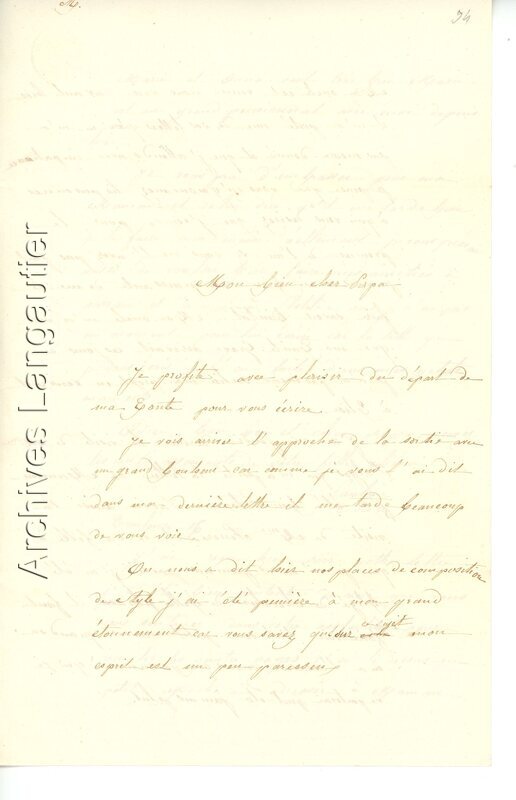 34
Mon bien cher Papa
Je profite avec plaisir du départ de
ma Tante pour vous écrire.
Je vois arriver l'approche de la sortie avec
un grand bonheur car comme je vous l'ai dit
dans ma dernière lettre il me tarde beaucoup
de vous voir.
On nous a dit hier nos places de composition
de style j'ai été première à mon grand
étonnement car vous savez que sur ce sujet mon
esprit est un peu paresseux
Archives Langautier